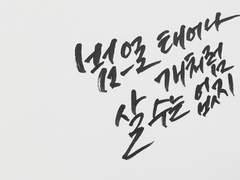 범으로 태어나
개처럼
살 수는 없지